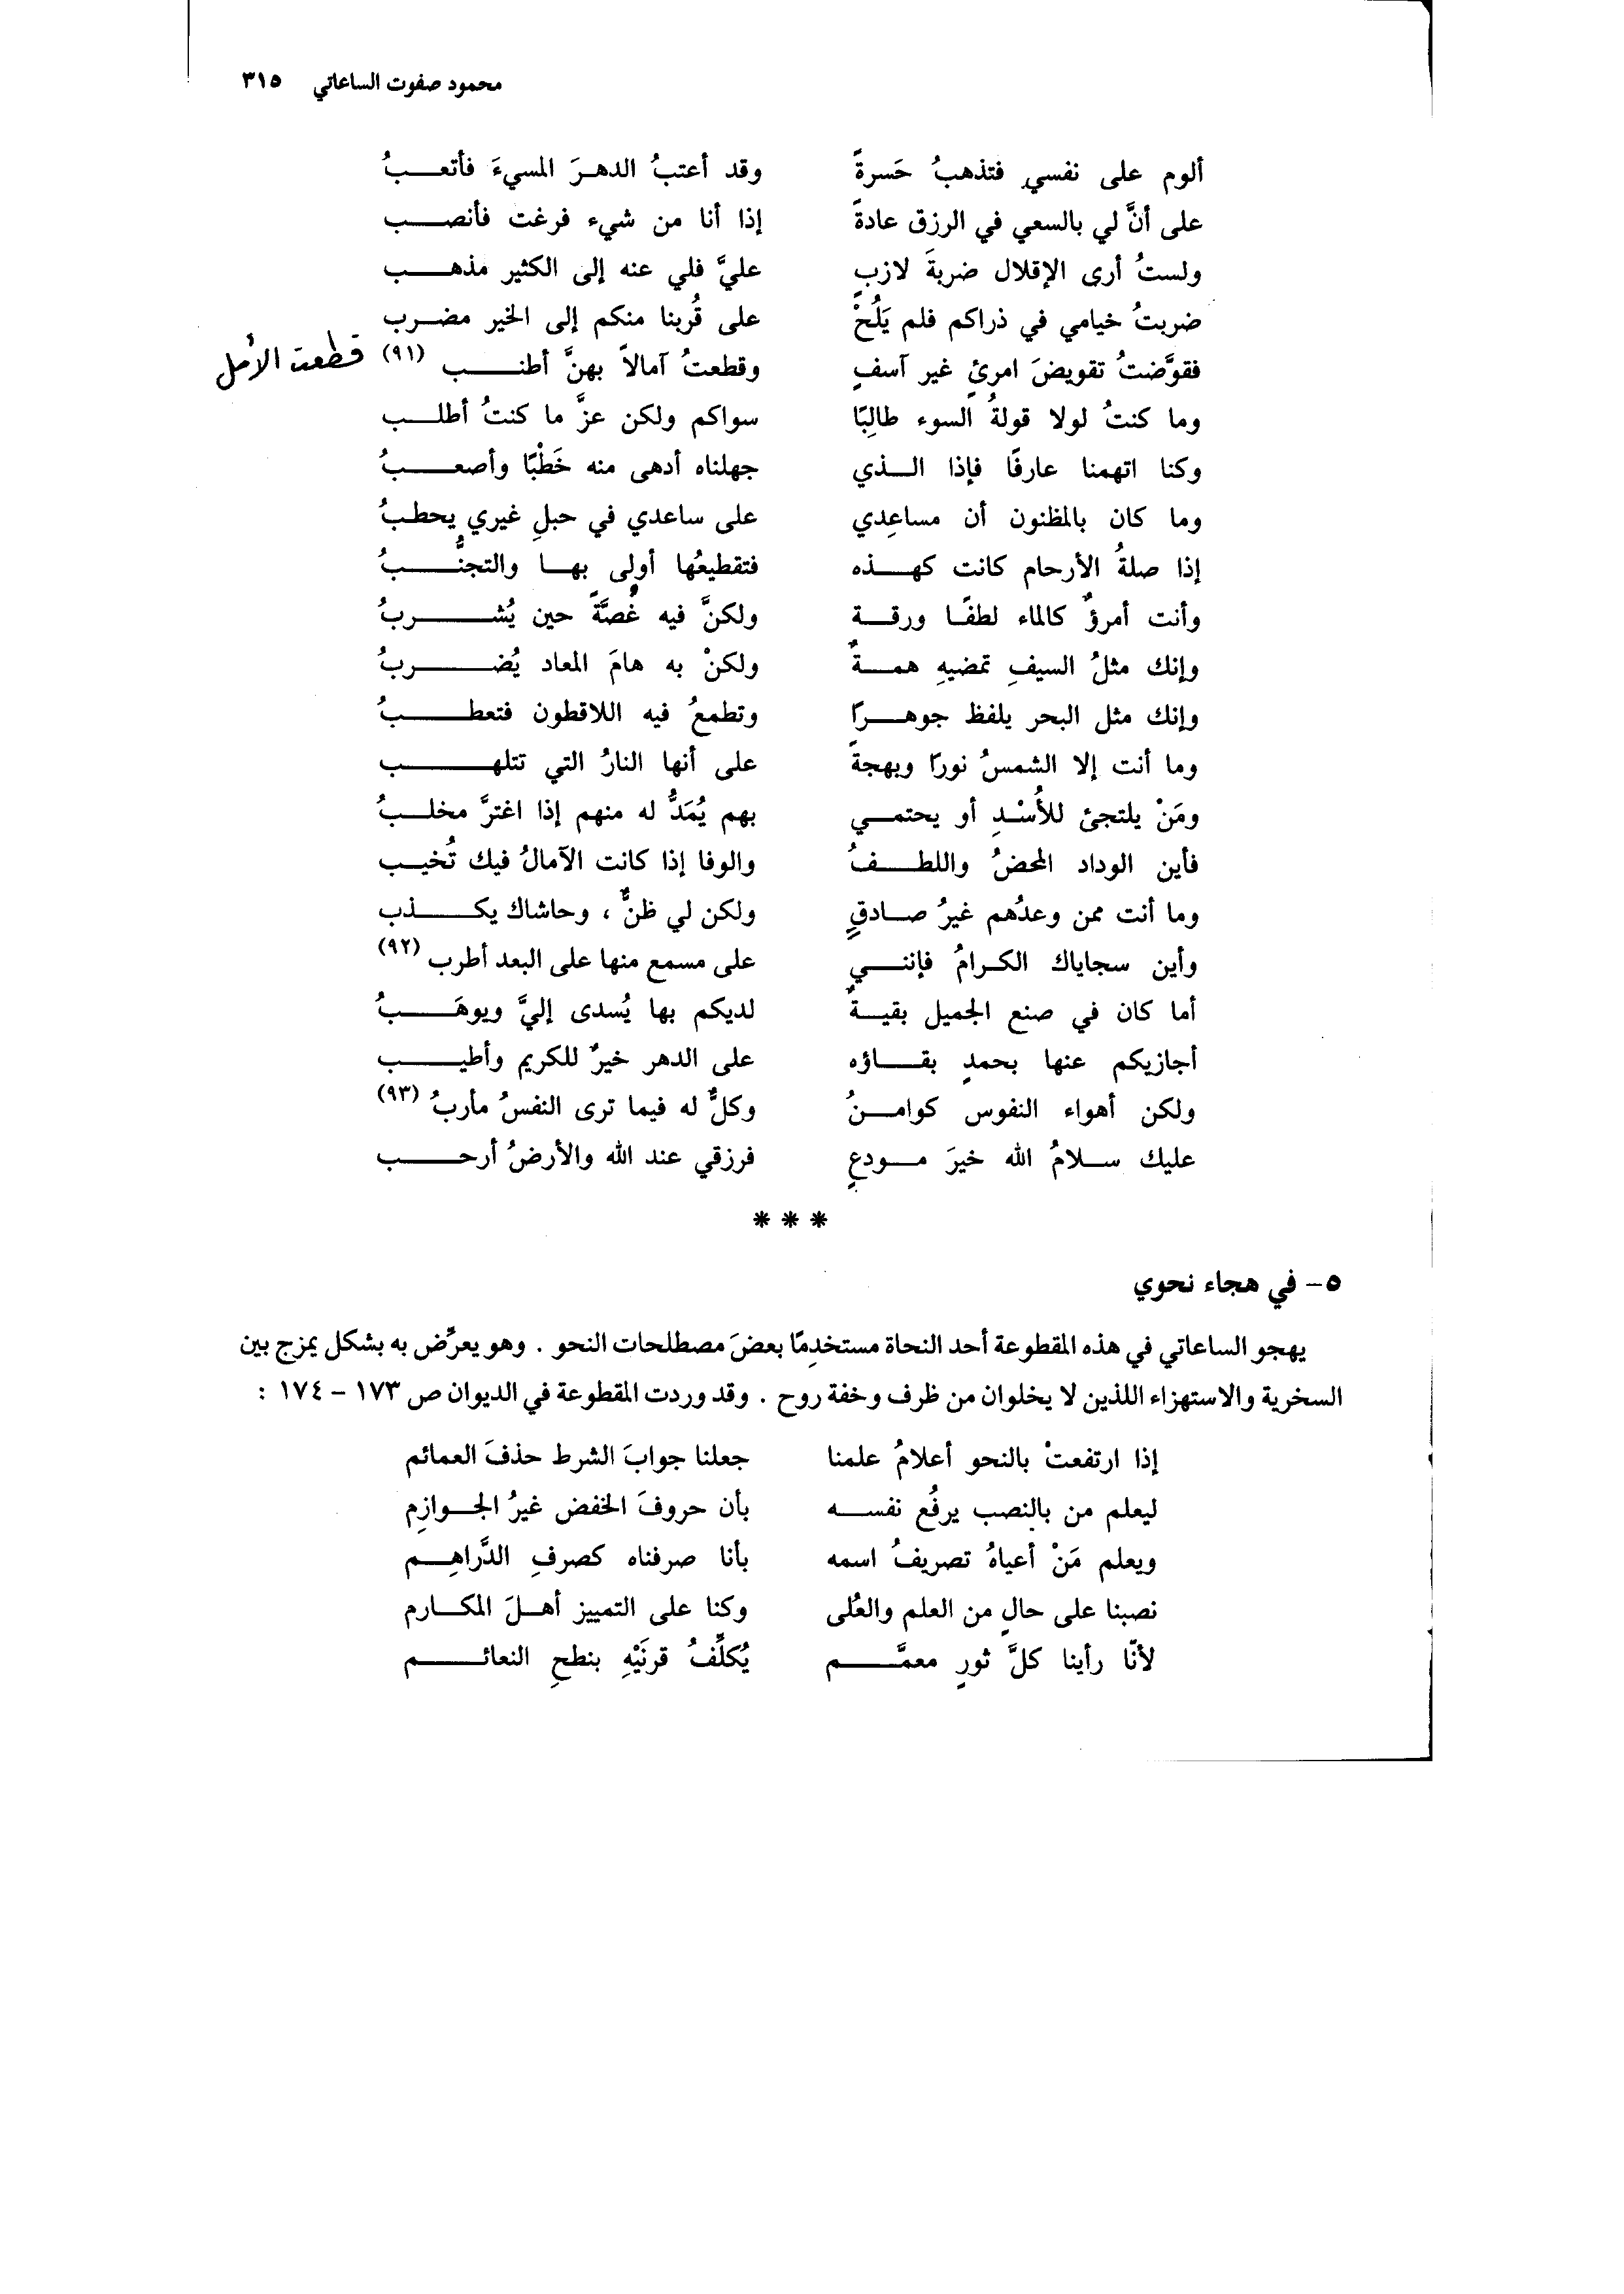 محمود صفوت الساعاتي ٣١٥
ألوم على نفسي فتذهبُ حَسرةً وقد أعتبُ الدهرَ المسيءَ فأتعبُ
على أنَّ لي بالسعي في الرزق عادةً إذا أنا من شيء فرغت فأنصب
ولستُ أرى الإقلال ضربةَ لازبٍ عليَّ فلي عنه إلى الكثير مذهب
ضربتُ خيامي في ذراكم فلم يَلُحْ على قُربنا منكم إلى الخير مضرب
فقوَّضتُ تقويضَ امرئٍ غير آسفٍ وقطعتُ آمالاً بهنَّ أطنب (٩١) قطعت الأمل
وما كنتُ لولا قولةُ السوء طالِبًا سواكم ولكن عزَّ ما كنتُ أطلب
وكنا اتهمنا عارفًا فإذا الذي جهلناه أدهى منه خَطْبًا وأصعبُ
وما كان بالمظنون أن مساعِدي على ساعدي في حبلِ غيري يحطبُ
إذا صلةُ الأرحام كانت كهذه فتقطيعُها أولى بها والتجنُّبُ
وأنت أمرؤٌ كالماء لطفًا ورقة ولكنَّ فيه غُصَّةً حين يُشربُ
وإنك مثلُ السيفِ تمضيهِ همةٌ ولكنْ به هامَ المعاد يُضربُ
وإنك مثل البحر يلفظ جوهرًا وتطمعُ فيه اللاقطون فتعطبُ
وما أنت إلا الشمسُ نورًا وبهجةً على أنها النارُ التي تتلهب
ومَنْ يلتجئ للأُسْدِ أو يحتمي بهم يُمَدُّ له منهم إذا اغترَّ مخلبُ
فأين الوداد المحضُ واللطفُ والوفا إذا كانت الآمالُ فيك تُخيب
وما أنت ممن وعدُهم غيرُ صادقٍ ولكن لي ظنٌّ ، وحاشاك يكذب
وأين سجاياك الكرامُ فإنني على مسمع منها على البعد أطرب (٩٢)
أما كان في صنع الجميل بقيةٌ لديكم بها يُسدى إليَّ ويوهَبُ
أجازيكم عنها بحمدٍ بقاؤه على الدهر خيرٌ للكريم وأطيب
ولكن أهواء النفوس كوامنُ وكلٌّ له فيما ترى النفسُ مأربُ (٩٣)
عليك سلامُ الله خيرَ مودعٍ فرزقي عند الله والأرضُ أرحب
* * *
٥- في هجاء نحوي
يهجو الساعاتي في هذه المقطوعة أحد النحاة مستخدِمًا بعضَ مصطلحات النحو . وهو يعرِّض به بشكل يمزج بين
السخرية والاستهزاء اللذين لا يخلوان من ظرف وخفة روح . وقد وردت المقطوعة في الديوان ص ١٧٣ – ١٧٤ :
إذا ارتفعتْ بالنحو أعلامُ علمنا جعلنا جوابَ الشرط حذفَ العمائم
ليعلم من بالنصب يرفُع نفسه بأن حروفَ الخفض غيرُ الجوازِم
ويعلم مَنْ أعياهُ تصريفُ اسمه بأنا صرفناه كصرفِ الدَّراهِم
نصبنا على حالٍ من العلم والعُلى وكنا على التمييز أهلَ المكارم
لأنّا رأينا كلَّ ثورٍ معمَّم يُكلِّفُ قرنَيْهِ بنطحِ النعائم